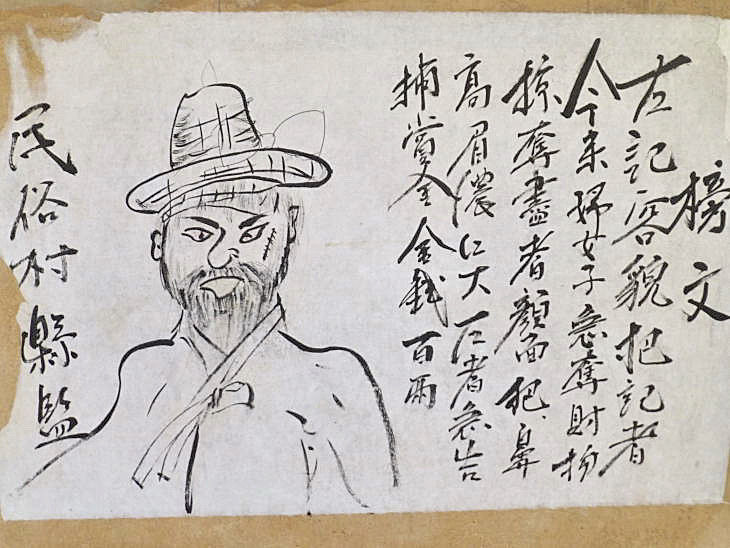 榜文
左記容貌把記者
今來婦女子急奪財物
掠奪盡者顔面把鼻
高眉濃仁大一仁者急告
捕賞金 金錢百兩
民俗村縣監